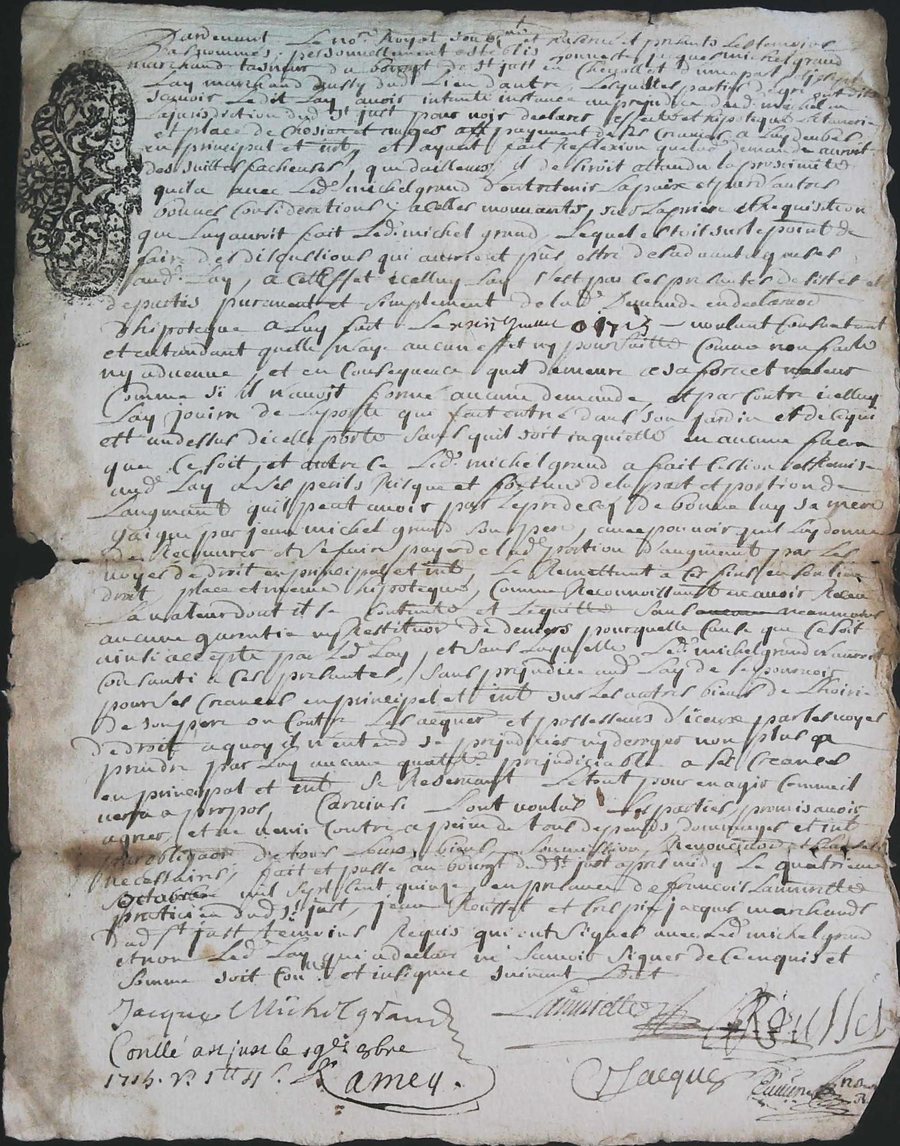 Pardevant Le not.re Royal soub.né et presents Les temoins
Bas nommés, personnellement establis Jacques michel grand
marchand tanneur du bourg de s.t just en Chevallet d'une part et
Lay marchand dud.s.t just du Lieu d'autre, Lesquelles parties de gré ont dit
scavoir Led.t Lay avoir intenté instance au prejudice dud. michel en
La jurisdiction dud s.t just pour voir declarer affecté et hipotequé La tanerie
et place de et au payement de ses creances a Luy deubes
en principal et int. et ayant fait Reflexion que lad. demande auroit
des suittes facheuses, que d'ailleurs il desiroit attandu la proximité
quil a avec Led. michel grand d'entretenir La paix et par d'autres
bonnes Considerations a celles mouvants, sur La priere et Requisition
que Luy auroit fait Led. michel grand, Lequel estoit sur le point de
faire des discussions qui auroient pus estre desadvantageuses
aud. Lay, a cet Effet icelluy Lay s'est par ces presentes desisté et
departis purement et simplement de lad. Demande en declaraon
d'hipoteque a Luy fait Le 1715 voulant Consentant
et entandant quelle n'aye aucun effet ny poursuitte Comme non faite
ny advenue, et en Consequence quil demeure a sa force et valeur
Comme si il n'avoit formé aucune demande et par contre icelluy
Lay jouira de La porte qui fait entrée dans son jardin et de ce qui
est au dessus d'icelle porte sans quil soit inquietté en aucune facon
que Ce soit, et outre ce Led. michel grand a fait Cession et Remise
aud. Lay a ses perils Risque et fortune de la part et portion de
Laugment quil peut avoir par Le predeces de bonne Lay sa mere
gaigné par jean michel grand son pere, avec pouvoir quil Luy donne
de Recouvrer et se faire payer de lad. portion d'augment par Les
voyes de droit en principal et int. Le Remettant a ces fins en son lieu
droit, place et mesme hipoteque, Comme Reconnoissant en avoir Receu
La valeur dont il se Contante et Le quitte sans neanmoins
aucune garentie ny Restitution de deniers pour quelle Cause que Ce soit
ainsi accepté par Led. Lay, et sans Laquelle Led. michel grand n'auroit
Consanti a Ces presentes, sans prejudice aud. Lay de se pourvoir
pour ses Creances en principal et int. sur Les autres biens de L'hoirie
de son pere ou Contre Les acquer. et possesseurs d'iceux par les voyes
de droit a quoy il n'entend se prejudicier ny deroger non plus que
prendre par Luy aucune qualité prejudiciable a ses Creances
en principal et int. se Reservant Le tout pour en agir Comme il
verra a propos, Car ainsi L'ont voulu Les parties, promis avoir
agreé, et ne venir Contre a peine de tous despends dommages et int.
par obligaon de tous Leurs biens, soumission, Renonciaon et Clauses
necessaires, fait et passé au bourg dud. s.t just apres midy Le quatrieme
Octobre mil sept Cent quinze, en presence de francois Lamurette
praticien dud s.t just, jean Rousset et Crespin jacques marchands
dud s.t just temoins Requis qui ont signé avec Led. michel grand
et non Led. Lay qui a declaré ne scavoir signer de Ce enquis et
somme soit Con.lé et insignué suivant L'Edit
Jacque Michel grand
Lamurette
Rousset
Conllé a st just le 19e 8bre
1715. R.
Lamey.
C Jacque